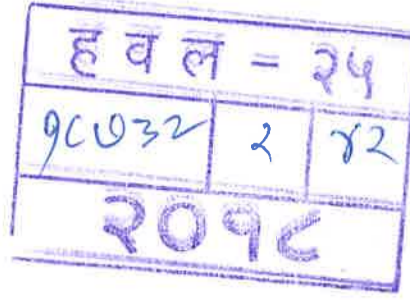 हवल - २५
१८७३२ २ ४२
२०१८